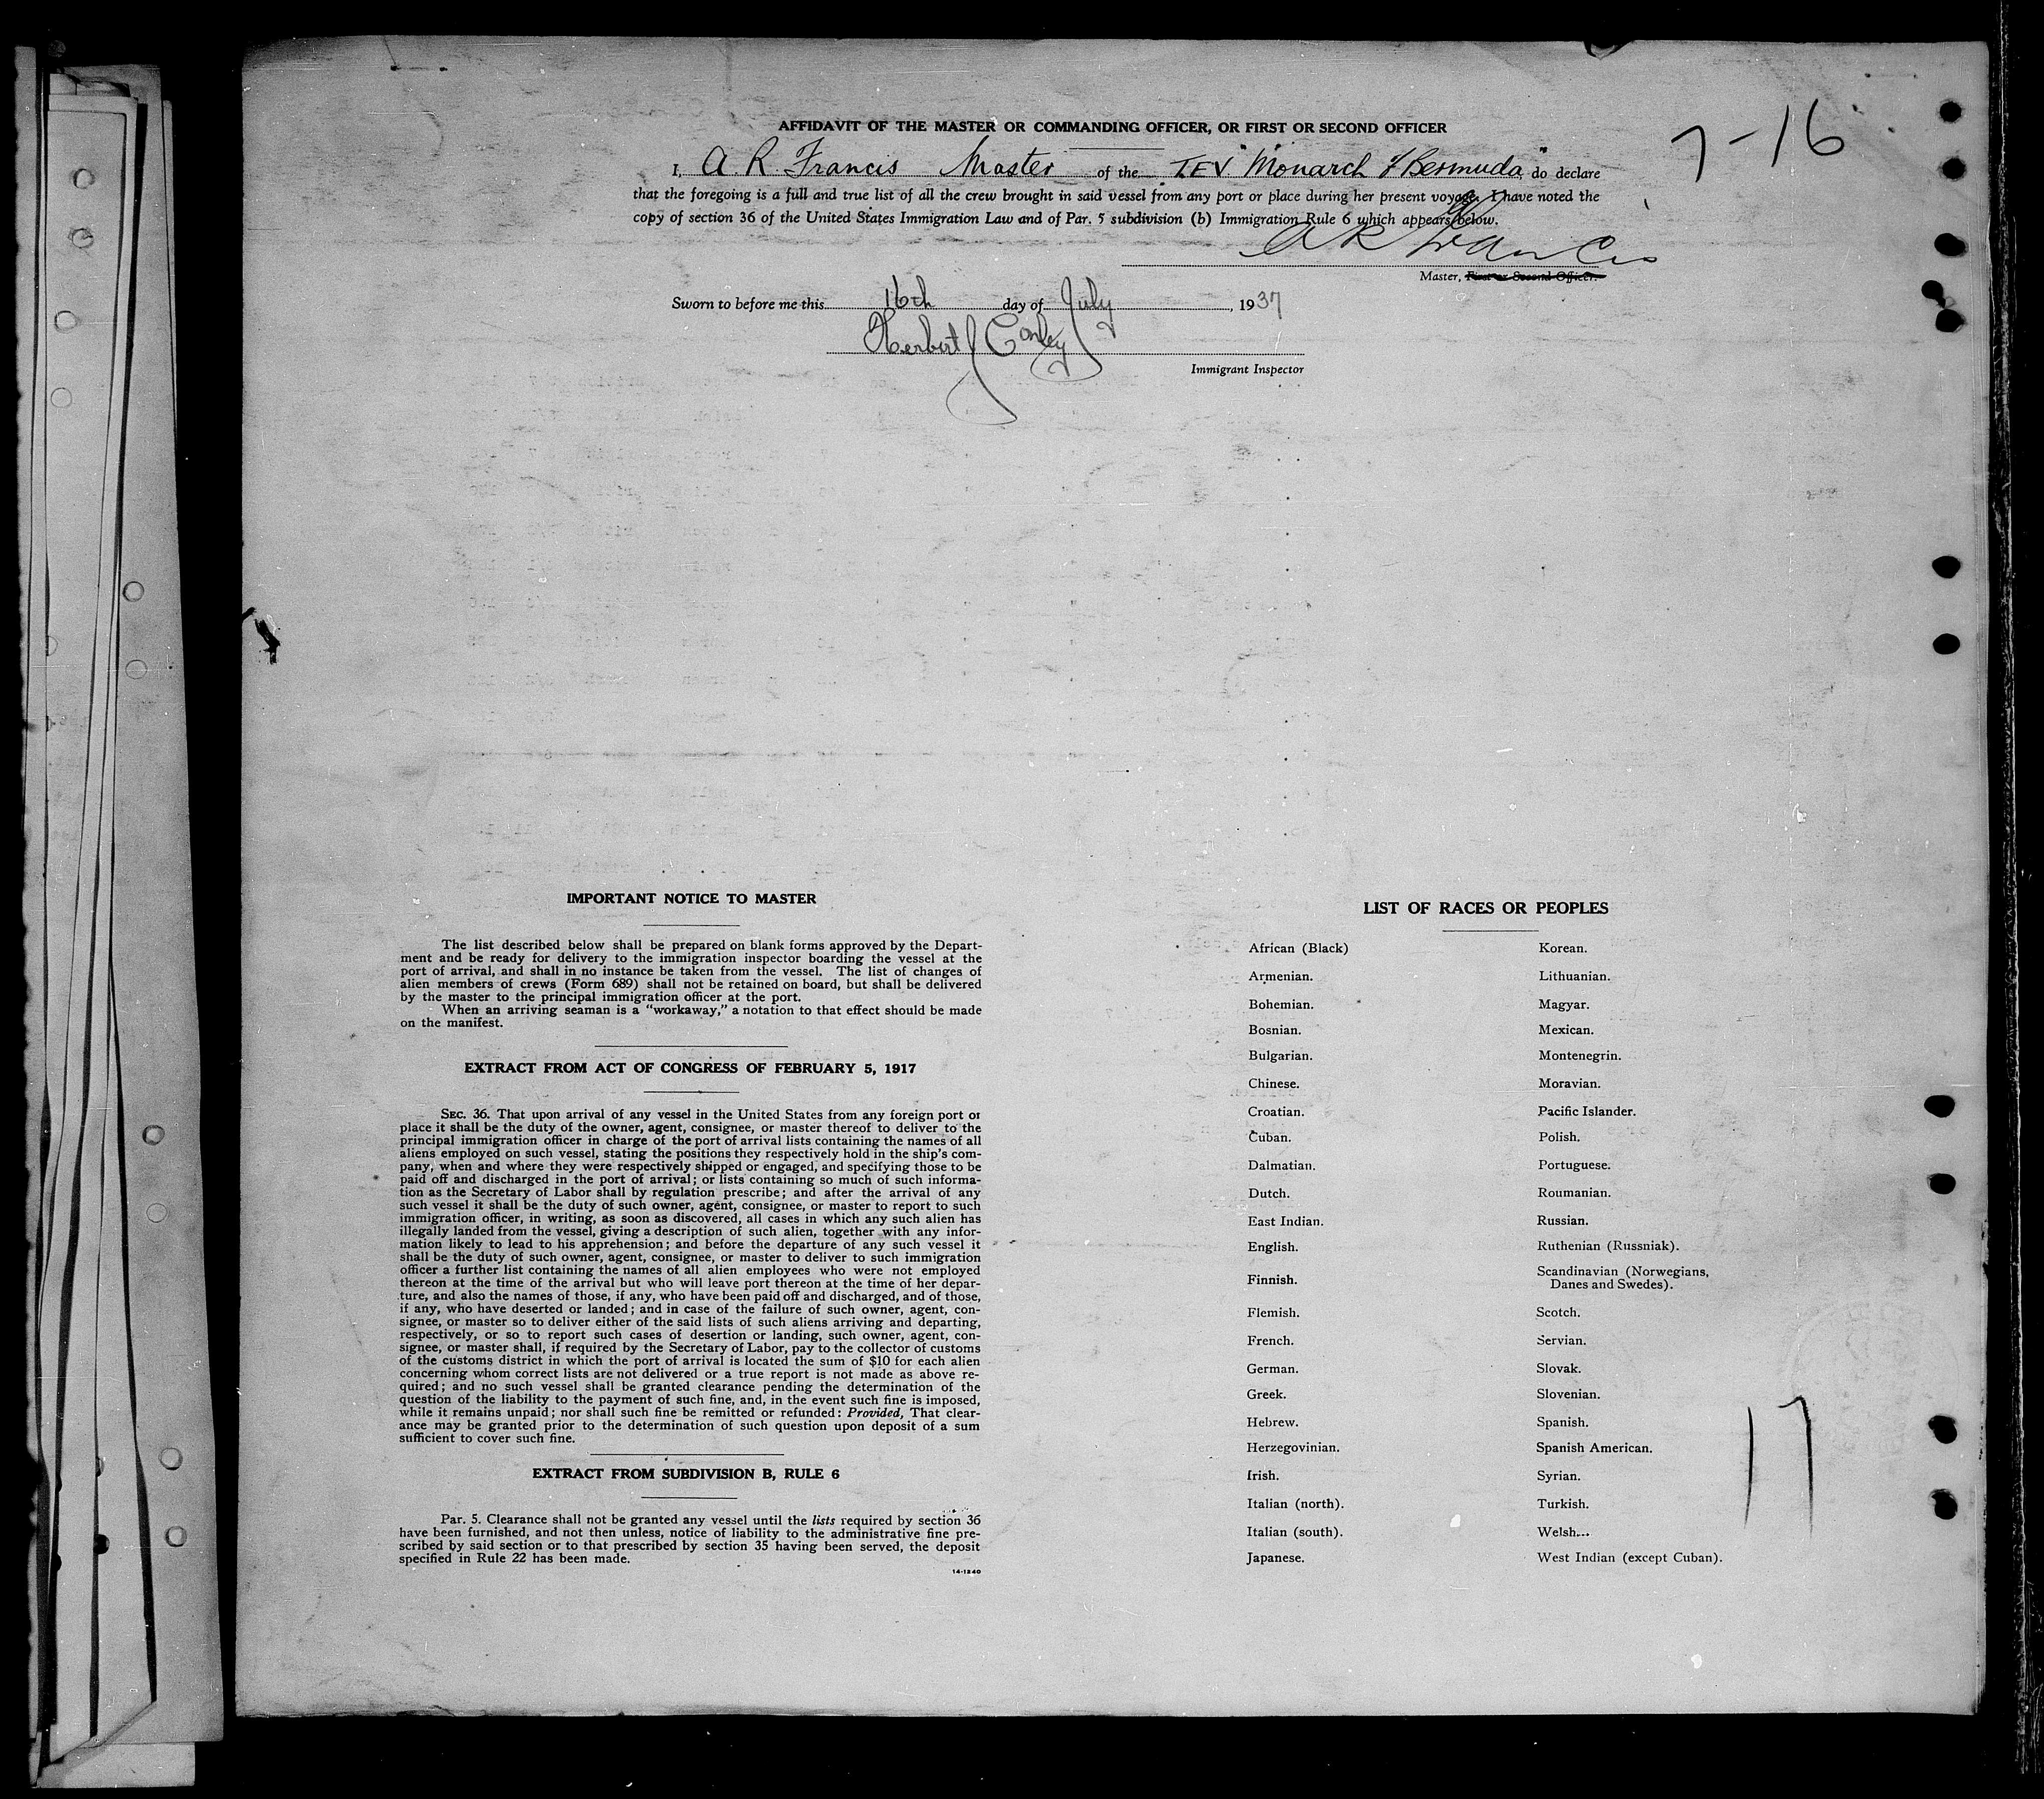 AFFIDAVIT OF THE MASTER OR COMMANDING OFFICER, OR FIRST OR SECOND OFFICER
7-16
I, A. R. Francis Master of the T.E.V. "Monarch of Bermuda", do declare
that the foregoing is a full and true list of all the crew brought in said vessel from any port or place during her present voyage. I have noted the
copy of section 36 of the United States Immigration Law and of Par. 5 subdivision (b) Immigration Rule 6 which appears below.
A R Francis
Master, First or Second Officer.
Sworn to before me this 16th day of July, 1937
Herbert J Conley
Immigrant Inspector
IMPORTANT NOTICE TO MASTER
The list described below shall be prepared on blank forms approved by the Depart-
ment and be ready for delivery to the immigration inspector boarding the vessel at the
port of arrival, and shall in no instance be taken from the vessel. The list of changes of
alien members of crews (Form 689) shall not be retained on board, but shall be delivered
by the master to the principal immigration officer at the port.
When an arriving seaman is a "workaway," a notation to that effect should be made
on the manifest.
EXTRACT FROM ACT OF CONGRESS OF FEBRUARY 5, 1917
SEC. 36. That upon arrival of any vessel in the United States from any foreign port or
place it shall be the duty of the owner, agent, consignee, or master thereof to deliver to the
principal immigration officer in charge of the port of arrival lists containing the names of all
aliens employed on such vessel, stating the positions they respectively hold in the ship's com-
pany, when and where they were respectively shipped or engaged, and specifying those to be
paid off and discharged in the port of arrival; or lists containing so much of such informa-
tion as the Secretary of Labor shall by regulation prescribe; and after the arrival of any
such vessel it shall be the duty of such owner, agent, consignee, or master to report to such
immigration officer, in writing, as soon as discovered, all cases in which any such alien has
illegally landed from the vessel, giving a description of such alien, together with any infor-
mation likely to lead to his apprehension; and before the departure of any such vessel it
shall be the duty of such owner, agent, consignee, or master to deliver to such immigration
officer a further list containing the names of all alien employees who were not employed
thereon at the time of the arrival but who will leave port thereon at the time of her depar-
ture, and also the names of those, if any, who have been paid off and discharged, and of those,
if any, who have deserted or landed; and in case of the failure of such owner, agent, con-
signee, or master so to deliver either of the said lists of such aliens arriving and departing,
respectively, or so to report such cases of desertion or landing, such owner, agent, con-
signee, or master shall, if required by the Secretary of Labor, pay to the collector of customs
of the customs district in which the port of arrival is located the sum of $10 for each alien
concerning whom correct lists are not delivered or a true report is not made as above re-
quired; and no such vessel shall be granted clearance pending the determination of the
question of the liability to the payment of such fine, and, in the event such fine is imposed,
while it remains unpaid; nor shall such fine be remitted or refunded: Provided, That clear-
ance may be granted prior to the determination of such question upon deposit of a sum
sufficient to cover such fine.
EXTRACT FROM SUBDIVISION B, RULE 6
Par. 5. Clearance shall not be granted any vessel until the lists required by section 36
have been furnished, and not then unless, notice of liability to the administrative fine pre-
scribed by said section or to that prescribed by section 35 having been served, the deposit
specified in Rule 22 has been made.
14-1240
LIST OF RACES OR PEOPLES
African (Black)
Armenian.
Bohemian.
Bosnian.
Bulgarian.
Chinese.
Croatian.
Cuban.
Dalmatian.
Dutch.
East Indian.
English.
Finnish.
Flemish.
French.
German.
Greek.
Hebrew.
Herzegovinian.
Irish.
Italian (north).
Italian (south).
Japanese.
Korean.
Lithuanian.
Magyar.
Mexican.
Montenegrin.
Moravian.
Pacific Islander.
Polish.
Portuguese.
Roumanian.
Russian.
Ruthenian (Russniak).
Scandinavian (Norwegians,
Danes and Swedes).
Scotch.
Servian.
Slovak.
Slovenian.
Spanish.
Spanish American.
Syrian.
Turkish.
Welsh.
West Indian (except Cuban).
17